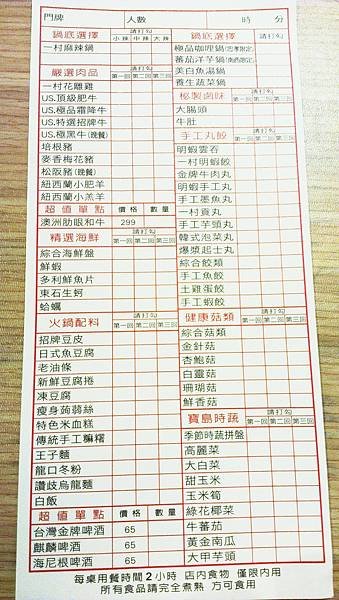 門牌 人數 時 分
鍋底選擇 請打勾
小辣 中辣 大辣
一村麻辣鍋
嚴選肉品 請打勾
第一回 第二回 第三回
一村花雕雞
US.頂級肥牛
US.極品霜降牛
US.特選招牌牛
US.極黑牛(晚餐)
培根豬
麥香梅花豬
松阪豬(晚餐)
紐西蘭小肥羊
紐西蘭小羔羊
超值單點 價格 數量
澳洲肋眼和牛 299
精選海鮮 請打勾
第一回 第二回 第三回
綜合海鮮盤
鮮蝦
多利鮮魚片
東石生蚵
蛤蠣
火鍋配料 請打勾
第一回 第二回 第三回
招牌豆皮
日式魚豆腐
老油條
新鮮豆腐捲
凍豆腐
瘦身蒟蒻絲
特色米血糕
傳統手工麻糬
王子麵
龍口冬粉
讚歧烏龍麵
白飯
超值單點 價格 數量
台灣金牌啤酒 65
麒麟啤酒 65
海尼根啤酒 65
鍋底選擇 請打勾
極品咖哩鍋
番茄洋芋鍋
美白魚湯鍋
養生蔬菜鍋
秘製滷味 請打勾
第一回 第二回 第三回
大腸頭
牛肚
手工丸餃 請打勾
第一回 第二回 第三回
明蝦雲吞
一村明蝦餃
金牌牛肉丸
明蝦手工丸
手工墨魚丸
一村貢丸
手工芋頭丸
韓式泡菜丸
爆漿起士丸
綜合餃類
手工魚餃
土雞蛋餃
手工蝦餃
健康菇類 請打勾
第一回 第二回 第三回
綜合菇類
金針菇
杏鮑菇
白靈菇
珊瑚菇
鮮香菇
寶島時蔬 請打勾
第一回 第二回 第三回
季節時蔬拼盤
高麗菜
大白菜
甜玉米
玉米筍
綠花椰菜
牛蕃茄
黃金南瓜
大甲芋頭
每桌用餐時間2小時 店內食物 僅限內用
所有食品請完全煮熟 方可食用